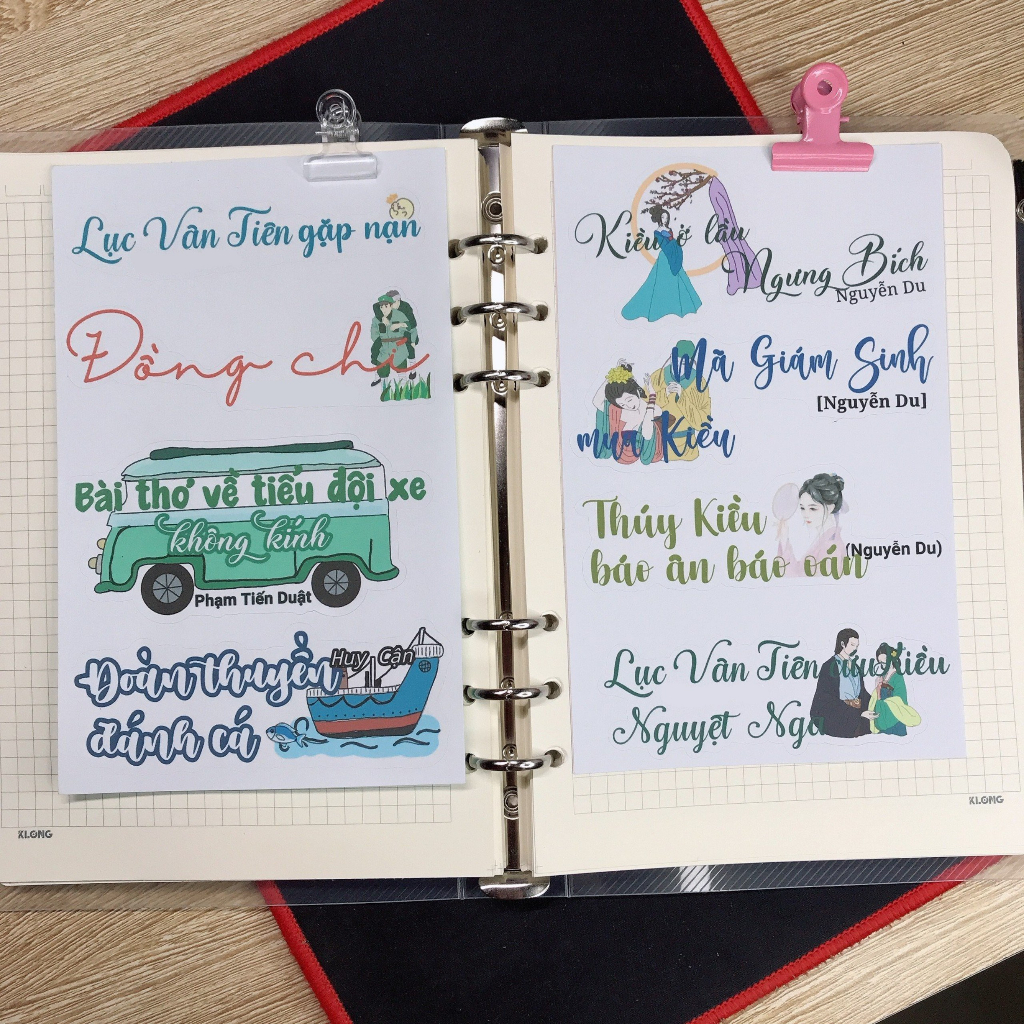 Lục Vân Tiên gặp nạn
Đồng chí
Bài thơ về tiểu đội xe
không kính
Phạm Tiến Duật
Đoàn thuyền
Huy Cận
đánh cá
KLONG
Kiều ở lầu
Ngưng Bích
Nguyễn Du
Mã Giám Sinh
[Nguyễn Du]
mua Kiều
Thúy Kiều
báo ân báo oán
(Nguyễn Du)
Lục Vân Tiên cứu Kiều
Nguyệt Nga
KLONG